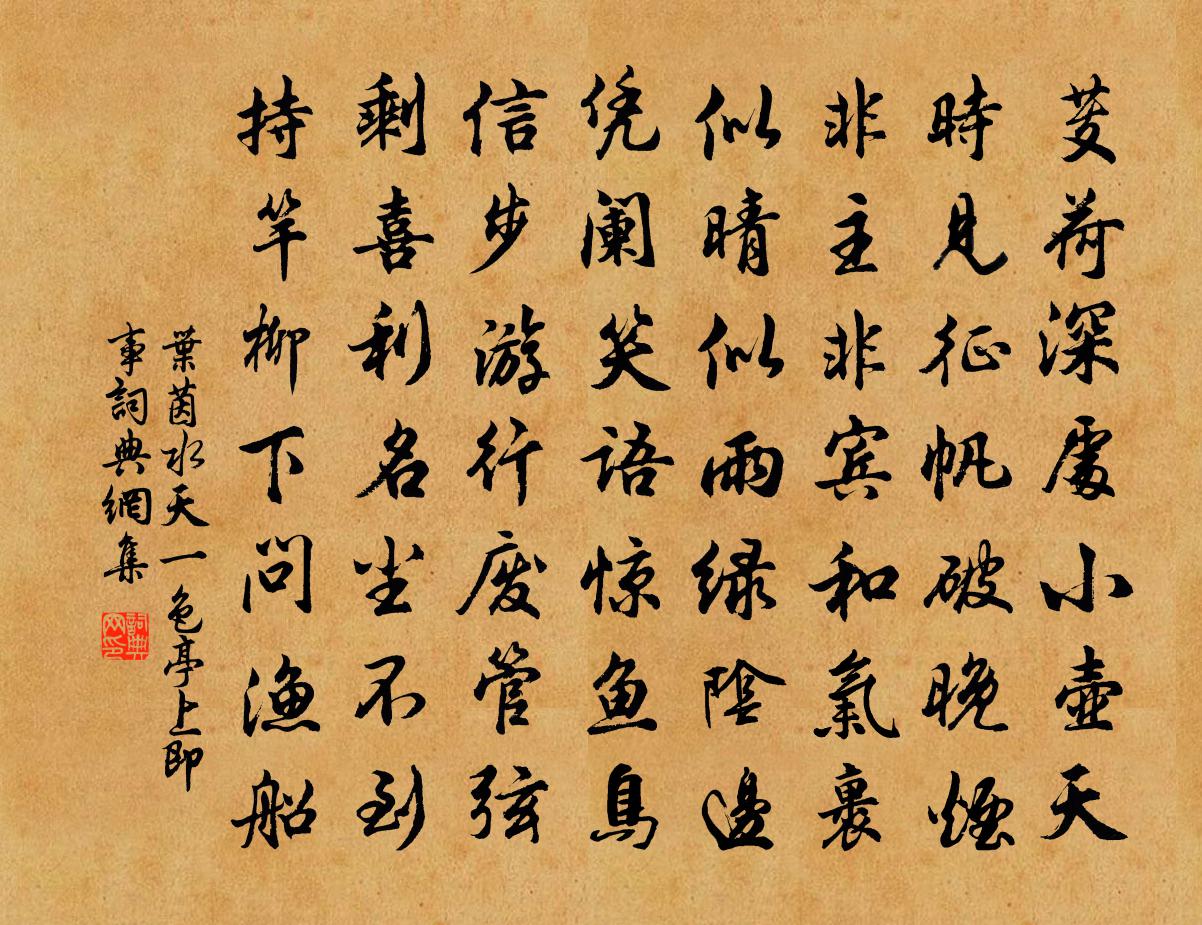 芰荷深處小壺天
時見征帆破晚煙
非主非宾和氣裏
似晴似雨绿陰邊
凭阑笑語惊鱼鳥
信步游行废管弦
剩喜利名尘不到
持竿柳下问渔船
葉茵水天一色亭上即
事詞典網集
詞典网印